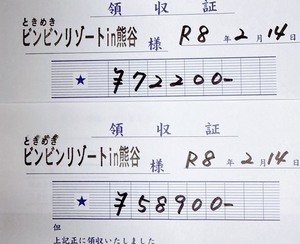 領収証
ときめき
ビンビンリゾートin熊谷 様 R8年2月14日
★ ¥772200-
領収証
ときめき
ビンビンリゾートin熊谷 様 R8年2月14日
★ ¥58900-
但
上記正に領収いたしました